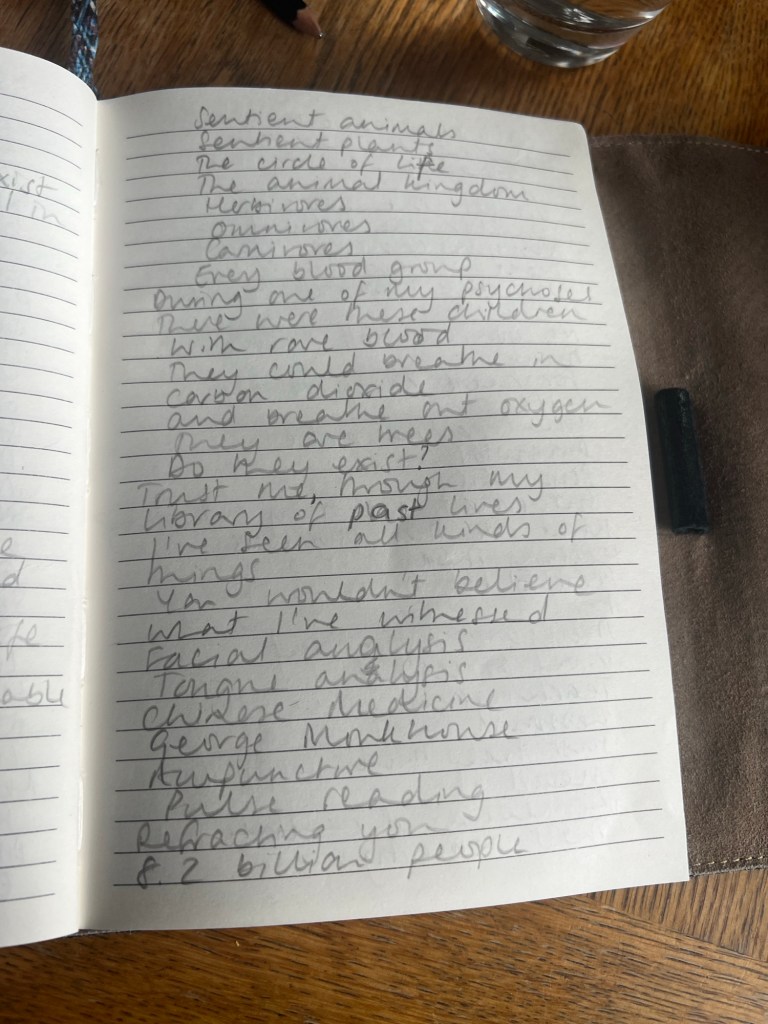 xist
in
e
d
fe
able
Sentient animals
Sentient plants
The circle of life
The animal kingdom
Herbivores
Omnivores
Carnivores
Erey blood group
During one of my psychoses
There were these children
With rare blood
They could breathe in
carbon dioxide
and breathe out oxygen
They are trees
Do they exist?
Trust me, through my
library of past lives
I've seen all kinds of
things
You wouldn't believe
what I've witnessed
Facial analysis
Tongue analysis
Chinese Medicine
George Monkhouse
Acupuncture
Pulse reading
Refracting you
8.2 billion people